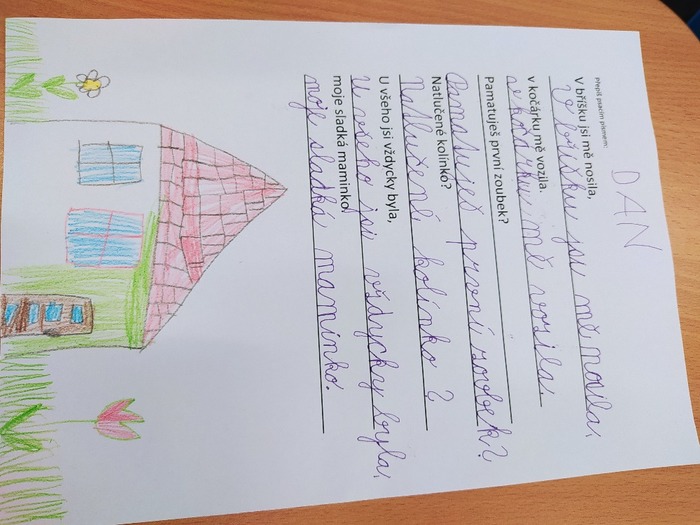 DAN
Přepiš psacím písmem:
V bříšku jsi mě nosila,
V bříšku jsi mě nosila,
v kočárku mě vozila.
v kočárku mě vozila.
Pamatuješ první zoubek?
Pamatuješ první zoubek?
Natlučené kolínko?
Natlučené kolínko?
U všeho jsi vždycky byla,
U všeho jsi vždycky byla,
moje sladká maminko!
moje sladká maminko!